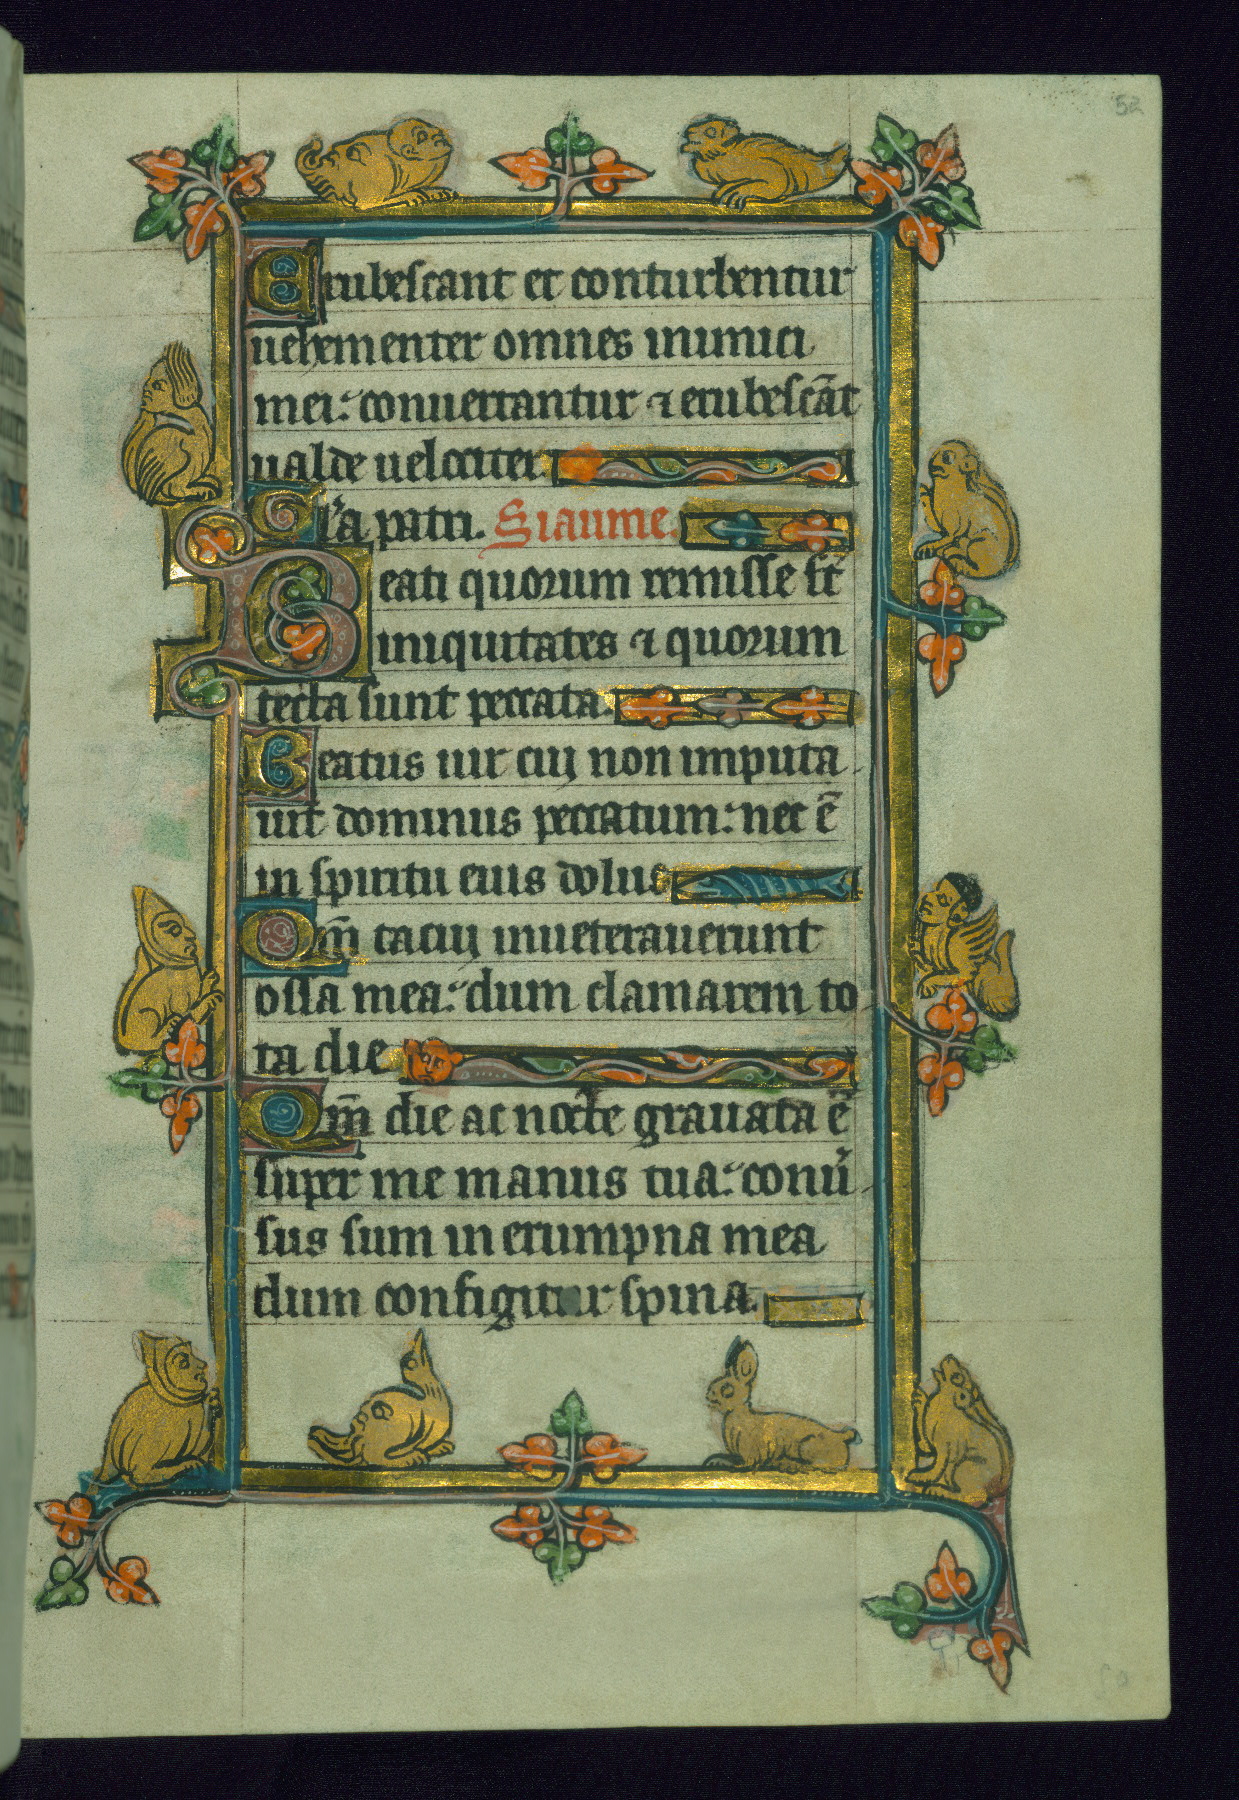 52
Erubescant et conturbentur
uehementer omnes inimici
mei: conuertantur ⁊ erubescãt
ualde uelociter
Gl'a patri. Siaume.
Beati quorum remisse st̃
iniquitates ⁊ quorum
tecta sunt peccata.
Beatus uir cui non imputa
uit dominus peccatum: nec ẽ
in spiritu eius dolus
Qm̃ tacui inueterauerunt
ossa mea: dum clamarem to
ta die
Qm̃ die ac nocte grauata ẽ
super me manus tua: conu̾
sus sum in erumpna mea
dum configitur spina.